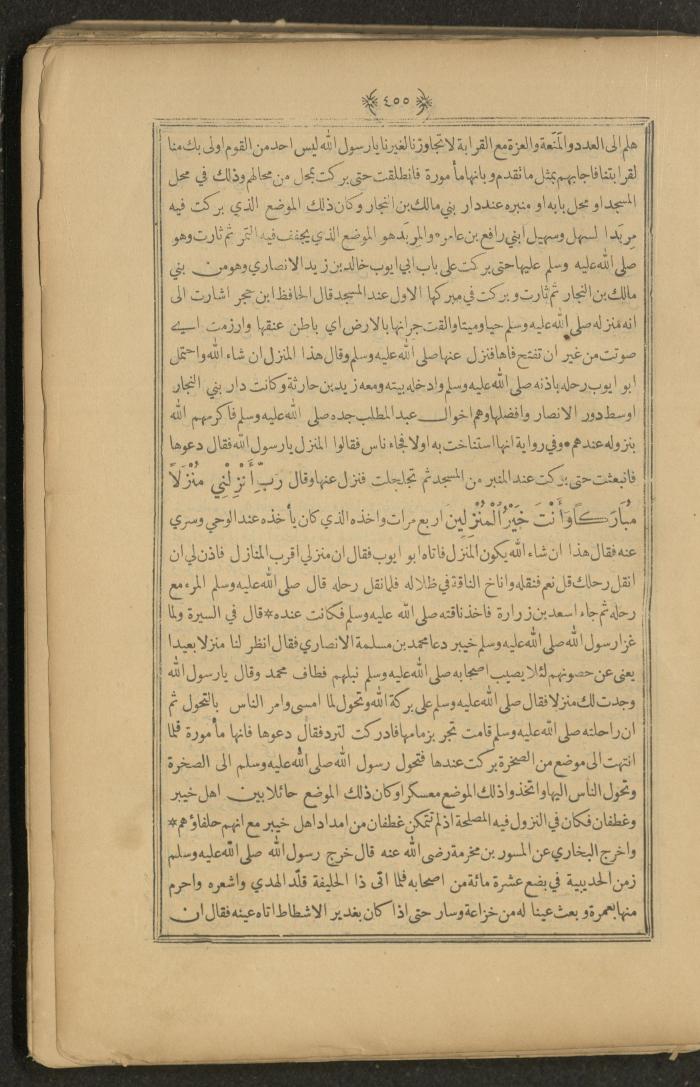 ٤٥٥
هلم الى العدد والمنعة والعزة مع القرابة لا تجاوزنا لغيرنا يا رسول الله ليس احد من القوم اولى بك منا
لقرابتنا فاجابهم بمثل ما تقدم وبانها مأمورة فانطلقت حتى بركت بمحل من محالهم وذلك في محل
المسجد او محل بابه او منبره عند دار بني مالك بن النجار وكان ذلك الموضع الذي بركت فيه
مربدا لسهل وسهيل ابني رافع بن عامر والمربد هو الموضع الذي يجفف فيه التمر ثم ثارت وهو
صلى الله عليه وسلم عليها حتى بركت على باب ابي ايوب خالد بن زيد الانصاري وهو من بني
مالك بن النجار ثم ثارت وبركت في مبركها الاول عند المسجد قال الحافظ ابن حجر اشارت الى
انه منزله صلى الله عليه وسلم حيا وميتا والقت جرانها بالارض اي باطن عنقها وارزمت اي
صوتت من غير ان تفتح فاها فنزل عنها صلى الله عليه وسلم وقال هذا المنزل ان شاء الله واحتمل
ابو ايوب رحله باذنه صلى الله عليه وسلم وادخله بيته ومعه زيد بن حارثة وكانت دار بني النجار
اوسط دور الانصار وافضلها وهم اخوال عبد المطلب جده صلى الله عليه وسلم فاكرمهم الله
بنزوله عندهم • وفي رواية انها استناخت به اولا فجاء ناس فقالوا المنزل يا رسول الله فقال دعوها
فانبعثت حتى بركت عند المنبر من المسجد ثم تجلجلت فنزل عنها وقال رَبِّ أَنْزِلْنِي مُنْزَلاً
مُبَارَكاً وَأَنْتَ خَيْرُ الْمُنْزِلِينَ اربع مرات واخذه الذي كان يأخذه عند الوحي وسري
عنه فقال هذا ان شاء الله يكون المنزل فاتاه ابو ايوب فقال ان منزلي اقرب المنازل فاذن لي ان
انقل رحلك قال نعم فنقله واناخ الناقة في ظلاله فلما نقل رحله قال صلى الله عليه وسلم المرء مع
رحله ثم جاء اسعد بن زرارة فاخذ ناقته صلى الله عليه وسلم فكانت عنده * قال في السيرة ولما
غزا رسول الله صلى الله عليه وسلم خيبر دعا محمد بن مسلمة الانصاري فقال انظر لنا منزلا بعيدا
يعنى عن حصونهم لئلا يصيب اصحابه صلى الله عليه وسلم نبلهم فطاف محمد وقال يا رسول الله
وجدت لك منزلا فقال صلى الله عليه وسلم على بركة الله وتحول لما امسى وامر الناس بالتحول ثم
ان راحلته صلى الله عليه وسلم قامت تجر بزمامها فادركت لترد فقال دعوها فانها مأمورة فلما
انتهت الى موضع من الصخرة بركت عندها فتحول رسول الله صلى الله عليه وسلم الى الصخرة
وتحول الناس اليها واتخذوا ذلك الموضع معسكرا وكان ذلك الموضع حائلا بين اهل خيبر
وغطفان فكان في النزول فيه المصلحة اذ لم تتمكن غطفان من امداد اهل خيبر مع انهم حلفاؤهم *
واخرج البخاري عن المسور بن مخرمة رضى الله عنه قال خرج رسول الله صلى الله عليه وسلم
زمن الحديبية في بضع عشرة مائة من اصحابه فلما اتى ذا الحليفة قلّد الهدي واشعره واحرم
منها بعمرة وبعث عينا له من خزاعة وسار حتى اذا كان بغدير الاشطاط اتاه عينه فقال ان